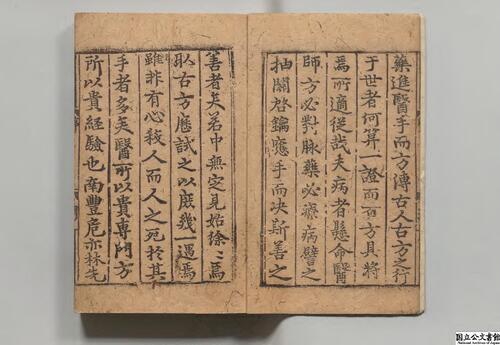 藥進醫手而方傳古人古方之行
于世者何算一證而百方具將
焉所適從哉夫病者懸命醫
師方必對脉藥必療病譬之
抽關啓鑰應手而决斯善之
善者矣若中無定見始徐〻爲
取古方歷試之以庶幾一遇焉
雖非有心殺人而人之死於其
手者多矣醫所以貴專門方
所以貴經驗也南豐危亦林先
国立公文書館
National Archives of Japan